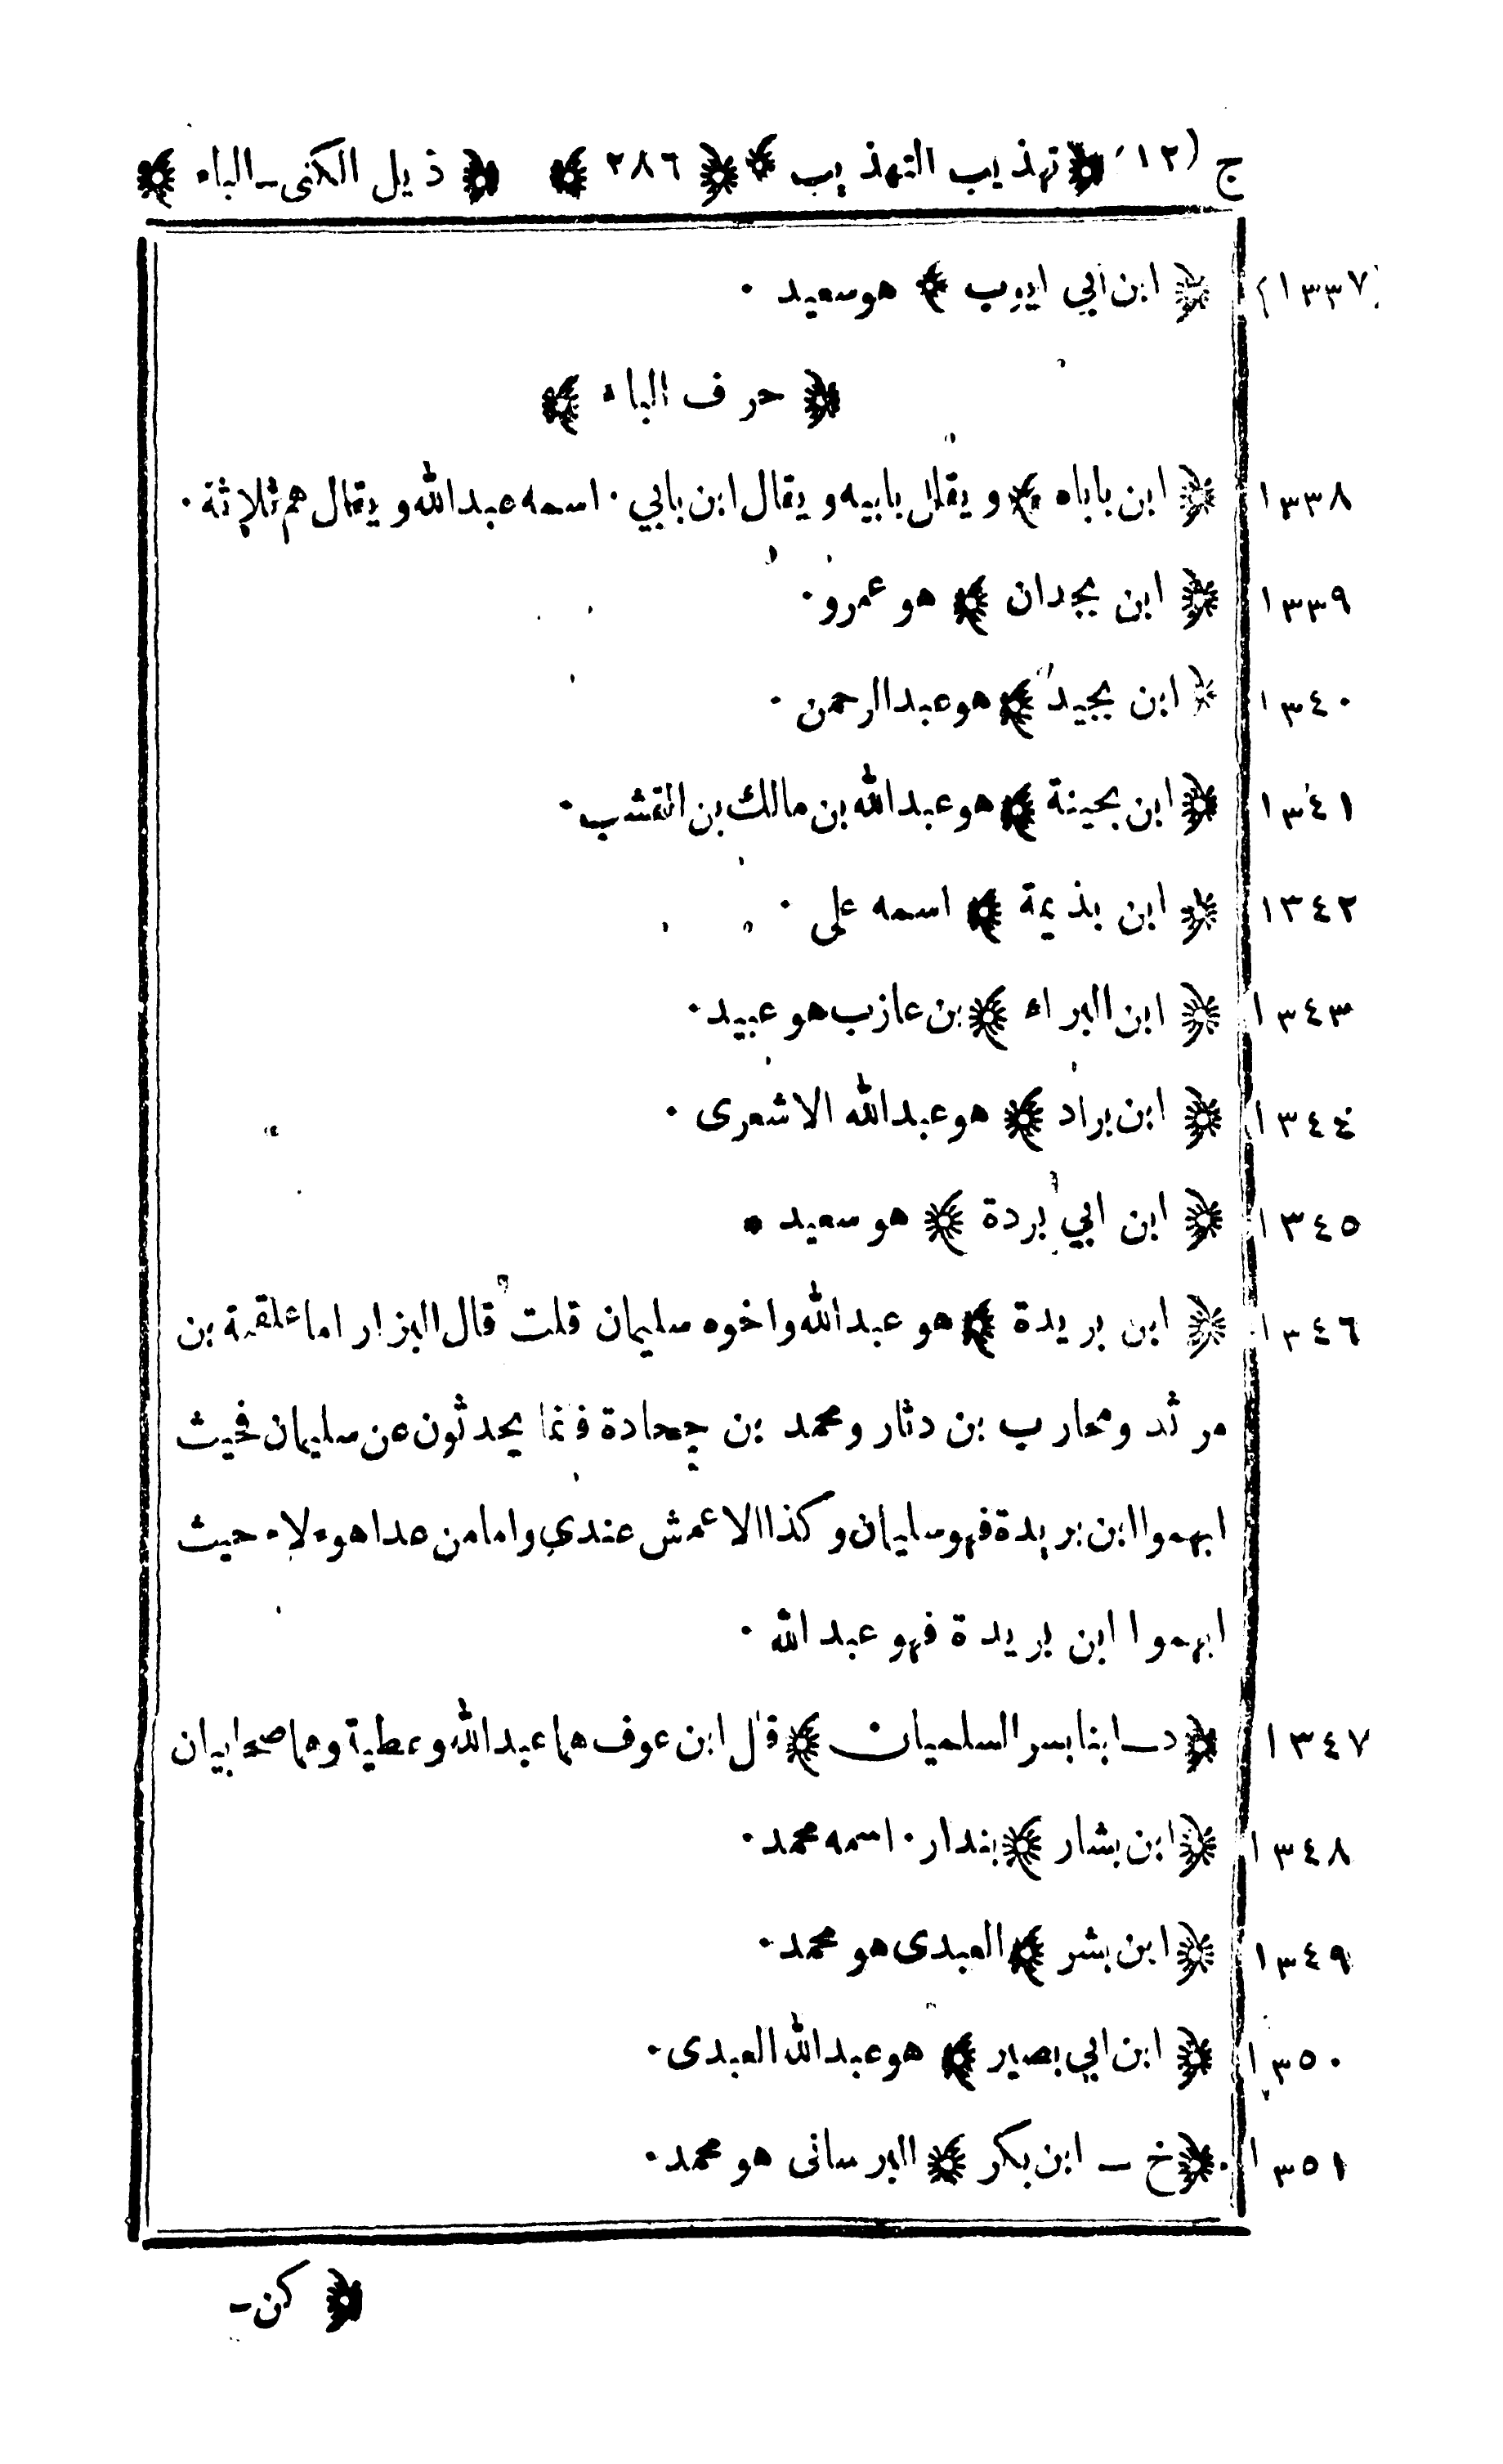 ج (١٢) ﴿تهذيب التهذيب﴾ ﴿٢٨٦﴾ ﴿ذيل الكنى ـ الباء﴾
(١٣٣٧) ﴿ابن ابي ايوب﴾ هو سعيد ٠
﴿حرف الباء﴾
١٣٣٨ ﴿ابن باباه﴾ ويقال بابيه ويقال ابن بابي ٠ اسمه عبد الله ويقال هم ثلاثة ٠
١٣٣٩ ﴿ابن بجدان﴾ هو عمرو ٠
١٣٤٠ ﴿ابن بجيد﴾ هو عبد الرحمن ٠
١٣٤١ ﴿ابن بحينة﴾ هو عبد الله بن مالك بن القشب ٠
١٣٤٢ ﴿ابن بذيمة﴾ اسمه على ٠
١٣٤٣ ﴿ابن البراء﴾ بن عازب هو عبيد ٠
١٣٤٤ ﴿ابن براد﴾ هو عبد الله الاشعرى ٠
١٣٤٥ ﴿ابن ابي بردة﴾ هو سعيد ٠
١٣٤٦ ﴿ابن بريدة﴾ هو عبد الله واخوه سليمان قلت قال البزار اما علقمة بن
مرثد ومحارب بن دثار ومحمد بن جحادة فانما يحدثون عن سليمان فحيث
ابهموا ابن بريدة فهو سليمان وكذا الاعمش عندي واما من عدا هوءلاء حيث
ابهموا ابن بريدة فهو عبد الله ٠
١٣٤٧ ﴿د ـ ابنا بسر السلميان﴾ قال ابن عوف هما عبد الله وعطية وهما صحابيان
١٣٤٨ ﴿ابن بشار﴾ بندار ٠ اسمه محمد ٠
١٣٤٩ ﴿ابن بشر﴾ العبدى هو محمد ٠
١٣٥٠ ﴿ابن ابي بصير﴾ هو عبد الله العبدى ٠
١٣٥١ ﴿خ ـ ابن بكر﴾ البرسانى هو محمد ٠
﴿كن ـ